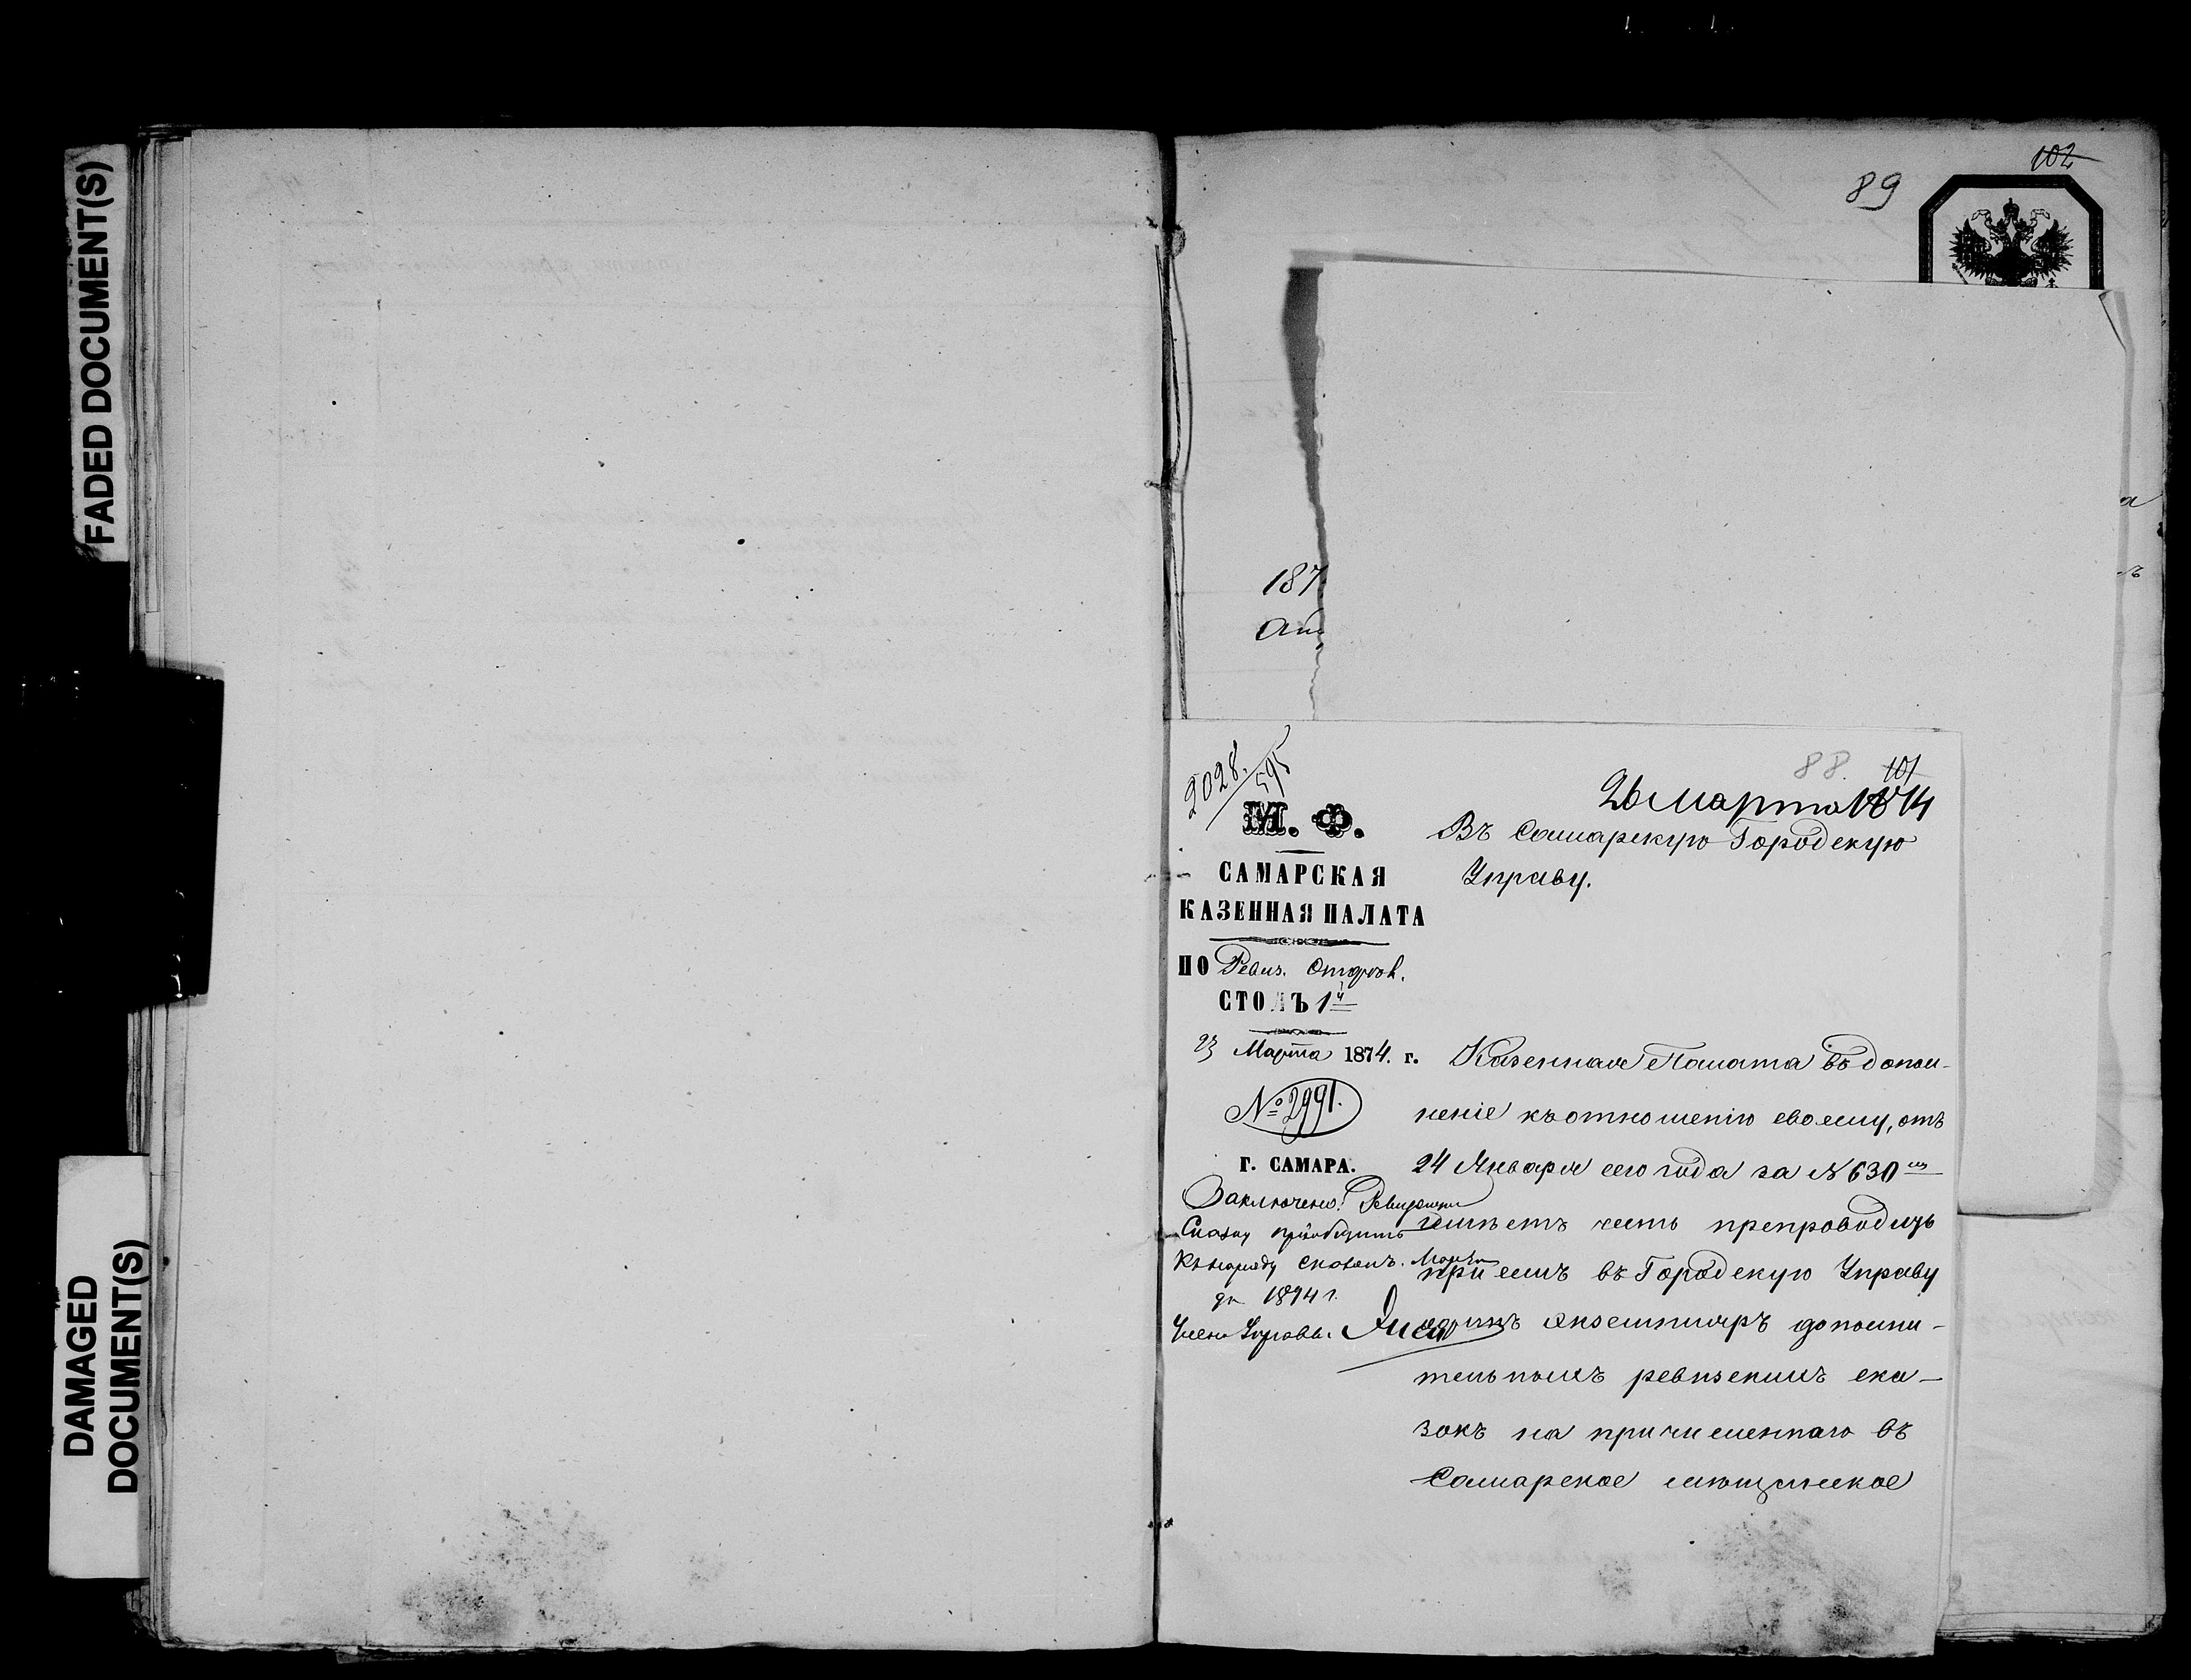 FADED DOCUMENT(S)
DAMAGED
DOCUMENT(S)
102
89
187
а
ъ
2028.
595
88.
101
26 Марта 1874
М. Ф.
САМАРСКАЯ
КАЗЕННАЯ ПАЛАТА
ПО Ревиз. Отдѣл.
СТОЛЪ 1й
23 Марта 1874. г.
№ 2991.
Г. САМАРА.
Заключено: Ревизскую
Сказку пріобщить
къ наряду сказокъ. Марта
дн 1874 г.
Членъ Управы
Въ Самарскую Городскую
Управу.
Казенная Палата въ допол-
неніе къ отношенію своему, отъ
24 Января сего года за № 630мъ
имѣетъ честь препроводить
при семъ въ Городскую Управу
одинъ экземпляръ дополни-
тельныхъ ревизскихъ ска-
зокъ на причисленнаго въ
Самарское мѣщанское